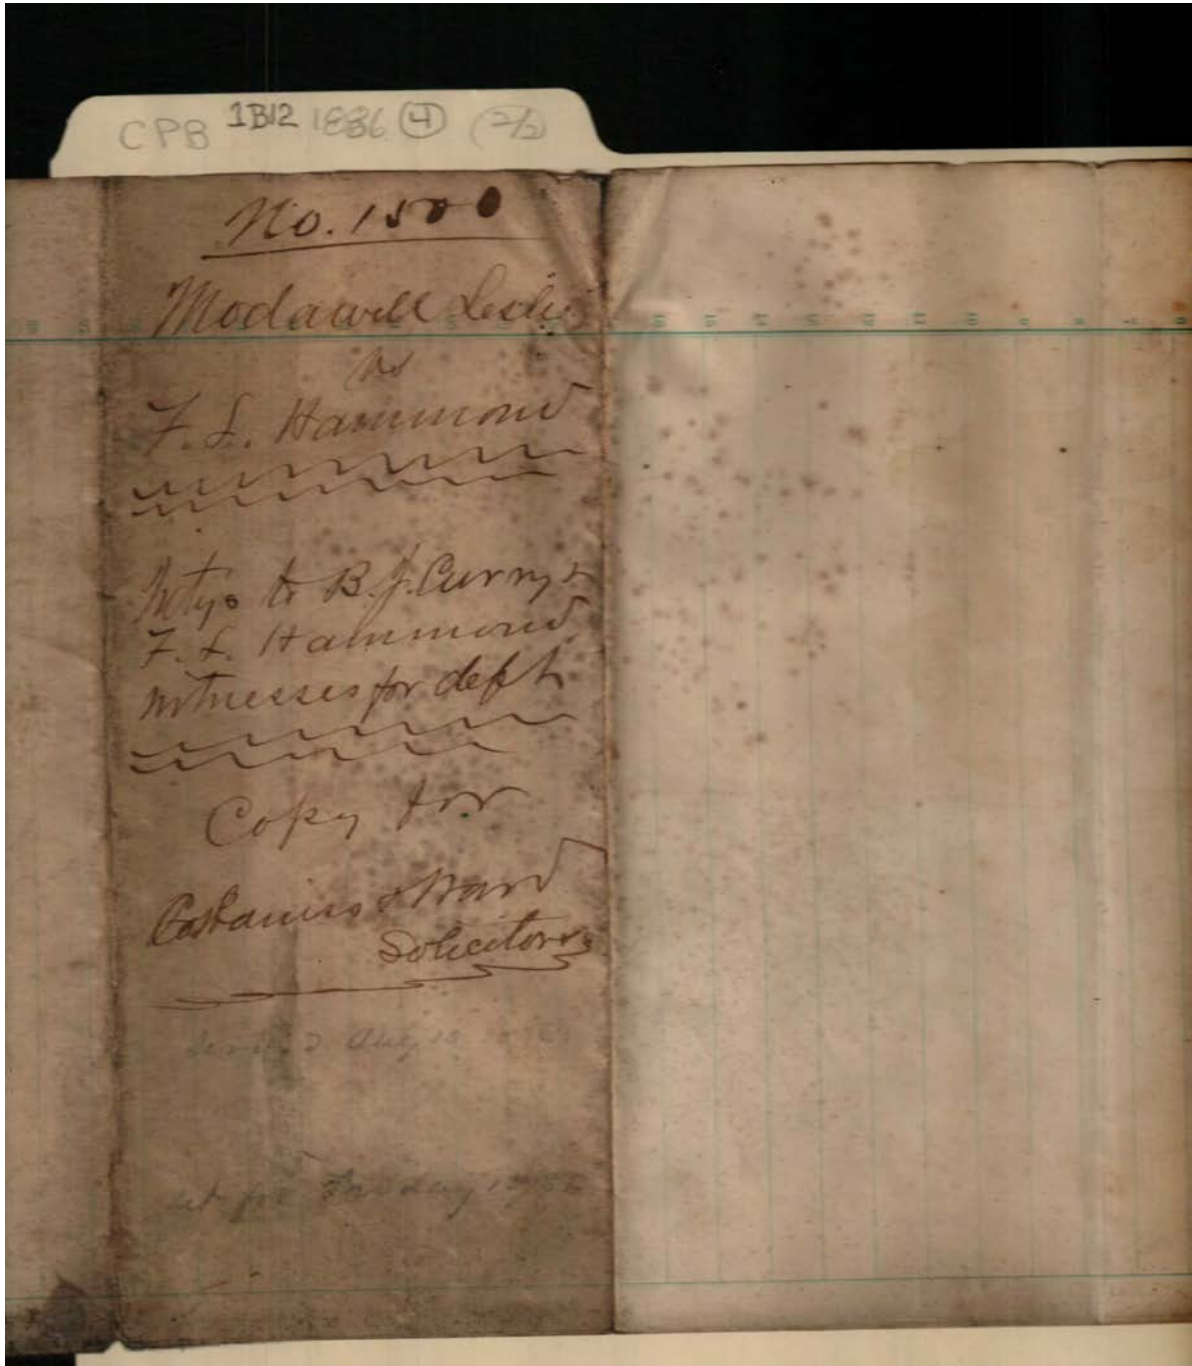 CPB 1B12 1886 (4) (2/2)
No. 1500
Modawell Leslie
vs
F. L. Hammond
Intys to B. J. Curry &
F. L. Hammond
witnesses for deft
Copy for
& Ward
Solicitors
Aug 18
set for